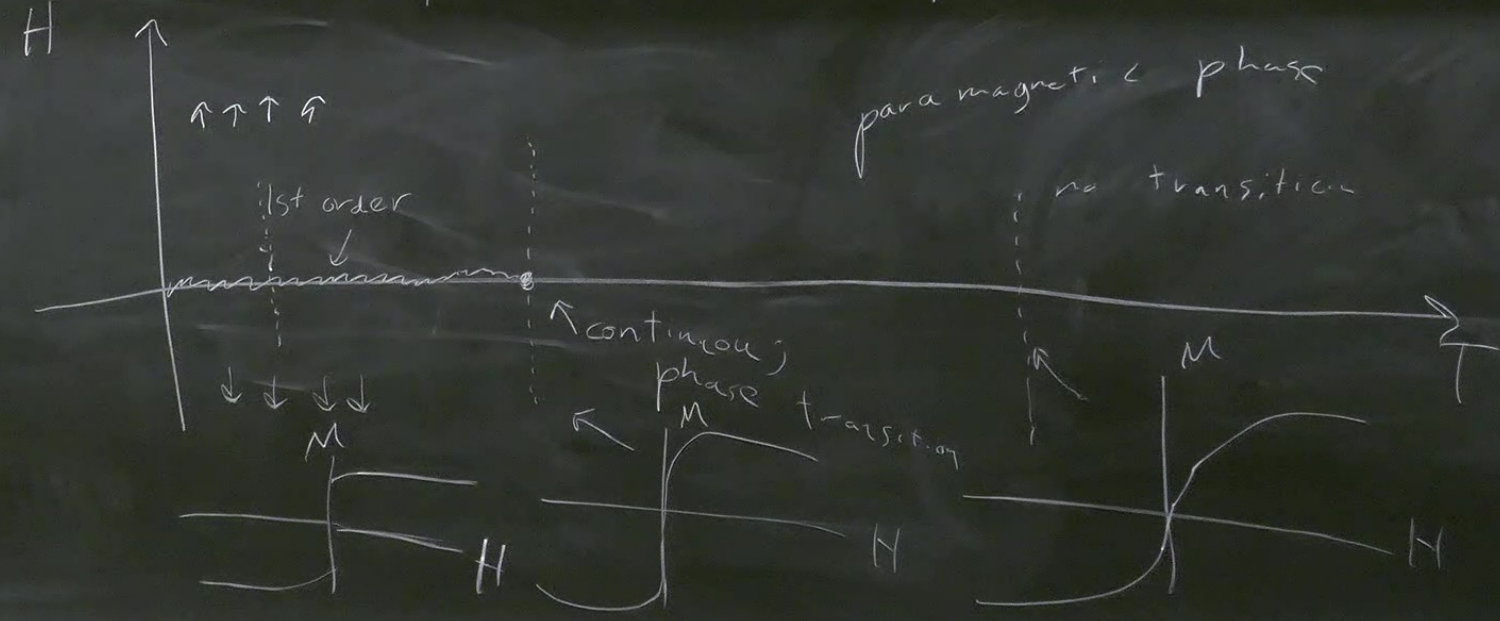 H
paramagnetic phase
1st order
no transition
continuous
phase
transition
T
M
H
M
H
M
H